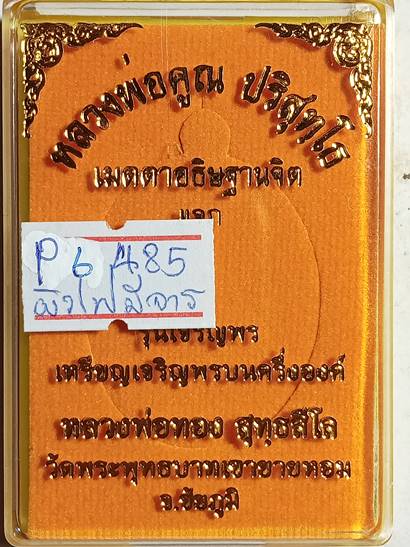 หลวงพ่อคูณ ปริสุทฺโธ
เมตตาอธิษฐานจิต
แจก
P 6 485
ผิวไฟมีจาร
รุ่นเจริญพร
เหรียญเจริญพรบนครึ่งองค์
หลวงพ่อทอง สุทฺธสีโล
วัดพระพุทธบาทเขายายหอม
จ.ชัยภูมิ